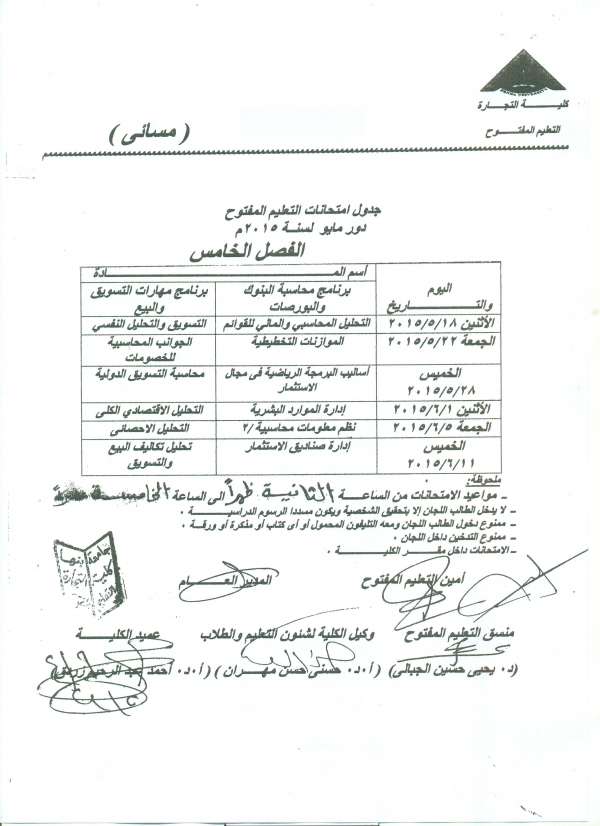 BENHA UNIVERSITY
كليـــة التجـارة
التعليم المفتـــوح
( مسائى )
جدول امتحانات التعليم المفتوح
دور مايو لسنة ٢٠١٥م
الفصل الخامس
اليوم والتـــــاريخ
أسم المــــــــــــــــــــادة
برنامج محاسبة البنوك والبورصات
برنامج مهارات التسويق والبيع
الأثنين ٢٠١٥/٥/١٨
التحليل المحاسبي والمالي للقوائم
التسويق والتحليل النفسي
الجمعة ٢٠١٥/٥/٢٢
الموازنات التخطيطية
الجوانب المحاسبية للخصومات
الخميس ٢٠١٥/٥/٢٨
أساليب البرمجة الرياضية فى مجال الاستثمار
محاسبة التسويق الدولية
الأثنين ٢٠١٥/٦/١
إدارة الموارد البشرية
التحليل الاقتصادي الكلى
الجمعة ٢٠١٥/٦/٥
نظم معلومات محاسبية /٢
التحليل الاحصائى
الخميس ٢٠١٥/٦/١١
إدارة صناديق الاستثمار
تحليل تكاليف البيع والتسويق
ملحوظة:
ـ مواعيد الامتحانات من الساعــة الثانية ظهراً الى الساعة الخامسة
ـ لا يدخل الطالب اللجان إلا بتحقيق الشخصية ويكون مسددا الرسوم الدراسيــة ٠
ـ ممنوع دخول الطالب اللجان ومعه التليفون المحمول أو أى كتاب أو مذكرة أو ورقة ٠
ـ ممنوع التدخين داخل اللجان ٠
ـ الامتحانات داخل مقــر الكليـــة ٠
أمين التعليم المفتوح
المدير العـــام
جامعة بنها
كلية التجارة
منسق التعليم المفتوح
وكيل الكلية لشئون التعليم والطلاب
عميد الكليـــة
(د٠ يحيى حسين الجبالى )
( أ٠د٠ حسنى حسن مهــران )
( أ٠د٠ أحمد عبد الرحيم زردق )